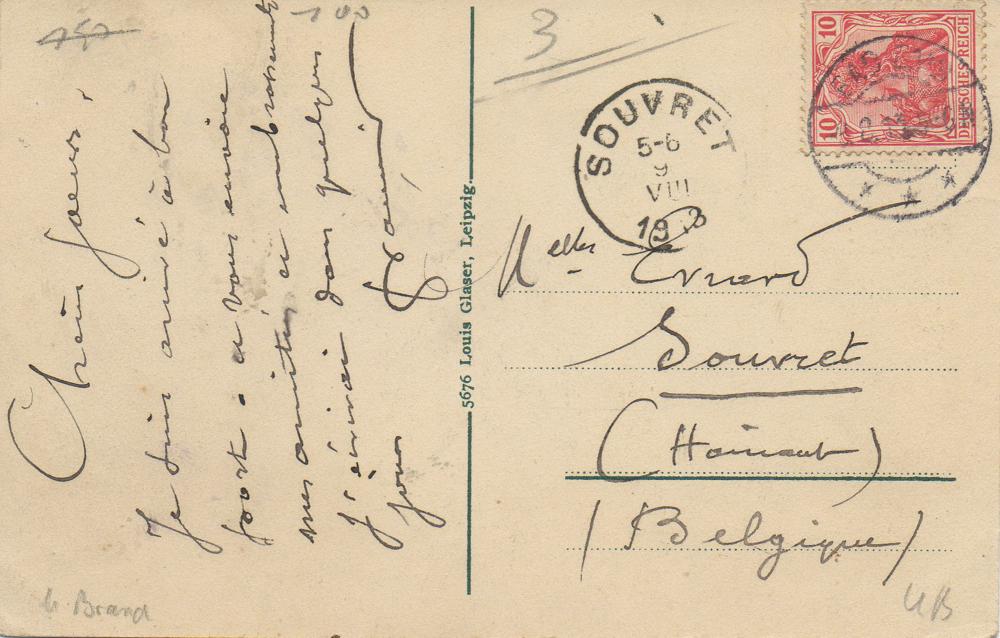 157
100
3
Chères soeurs,
Je suis arrivé à bon
port. à vous envoie
mes amitiés et embrassements
J'écrirai dans quelques
jours
5676 Louis Glaser, Leipzig.
SOUVRET
5-6
9
VIII
10
DEUTSCHES REICH
10
Melles Evrard
Souvret
(Hainaut)
(Belgique)
Brand